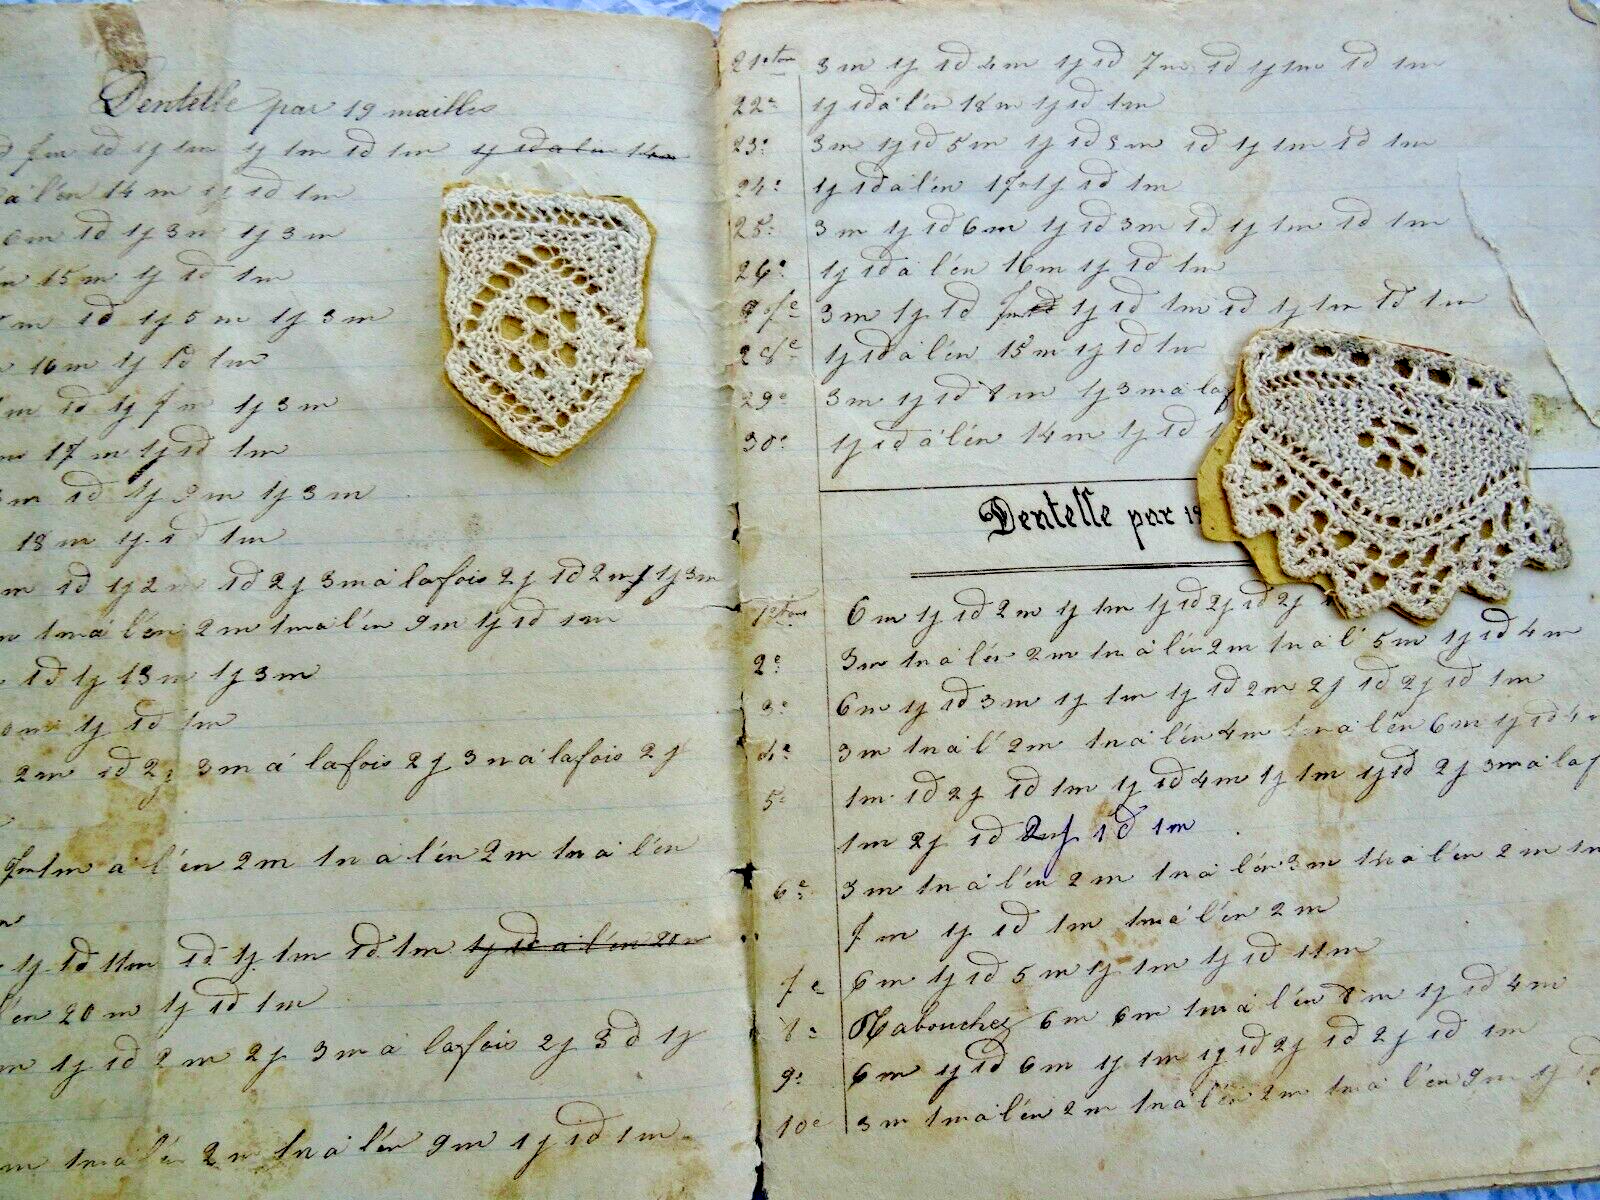 Dentelle par 19 mailles
7m 1d 1j 1m 1j 1m 1d 1m 1j 1d a l'en 14m
a l'én 14m 1j 1d 1m
6m 1d 1j 3m 1j 3m
15m 1j 1d 1m
m 1d 1j 5m 1j 3m
16m 1j 1d 1m
m 1d 1j 7m 1j 3m
17m 1j 1d 1m
m 1d 1j 9m 1j 3m
18m 1j 1d 1m
m 1d 1j 2m 1d 2j 3m à lafois 2j 1d 2m 1j 3m
1m à l'én 2m 1m a l'én 9m 1j 1d 1m
1d 1j 13m 1j 3m
1j 1d 1m
2m 1d 2j 3m à lafois 2j 3m à lafois 2j
7m 1m a l'én 2m 1m a l'én 2m 1m a l'én
1j 1d 11m 1d 1j 1m 1d 1m 1j 1d a l'én 20m
l'én 20m 1j 1d 1m
m 1j 1d 2m 2j 3m a lafois 2j 3d 1j
m 1m a l'én 2m 1m a l'én 9m 1j 1d 1m
21e tour 3m 1j 1d 4m 1j 1d 7m 1d 1j 1m 1d 1m
22e 1j 1d à l'én 18m 1j 1d 1m
23e 3m 1j 1d 5m 1j 1d 5m 1d 1j 1m 1d 1m
24e 1j 1d à l'én 17m 1j 1d 1m
25e 3m 1j 1d 6m 1j 1d 3m 1d 1j 1m 1d 1m
26e 1j 1d à l'én 16m 1j 1d 1m
27e 3m 1j 1d 7m 1d 1j 1d 1m 1d 1j 1m 1d 1m
28e 1j 1d à l'én 15m 1j 1d 1m
29e 3m 1j 1d 8m 1j 3m à laf
30e 1j 1d à l'én 14m 1j 1d 1
Dentelle par 19
1er tour 6m 1j 1d 2m 1j 1m 1j 1d 2j 1d 2j
2e 3m 1m à l'én 2m 1m à l'én 2m 1m à l' 5m 1j 1d 4m
3e 6m 1j 1d 3m 1j 1m 1j 1d 2m 2j 1d 2j 1d 1m
4e 3m 1m à l' 2m 1m à l'én 4m 1m à l'én 6m 1j 1d 4m
5e 1m 1d 2j 1d 1m 1j 1d 4m 1j 1m 1j 1d 2j 3m à laf
1m 2j 1d 2j 1d 1m
6e 3m 1m à l'én 2m 1m à l'én 3m 1m à l'én 2m 1m
7m 1j 1d 1m 1m à l'én 2m
7e 6m 1j 1d 5m 1j 1m 1j 1d 11m
8e Rabouchez 6m 6m 1m à l'én 8m 1j 1d 4m
9e 6m 1j 1d 6m 1j 1m 1j 1d 2j 1d 2j 1d 1m
10e 3m 1m à l'én 2m 1m à l'én 2m 1m à l'én 9m 1j 1d